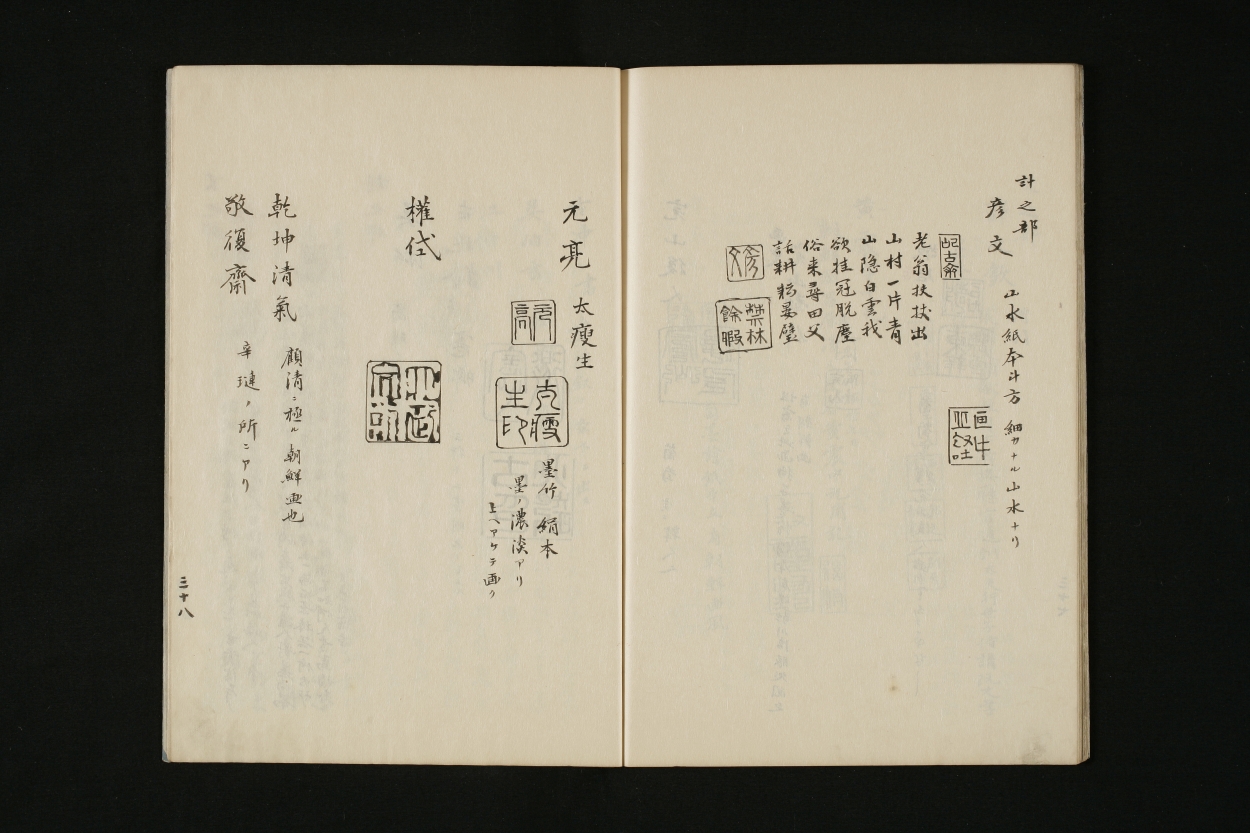 計之部
彦文
山水紙本斗方 細カナル山水ナリ
老翁扶杖出
山村一片青
山隠白雲我
欲挂冠脱塵
俗来尋田父
話耕耘晏
禁林
餘暇
元亮
太瘦生
元亮
生印
墨竹 絹本
墨ノ濃淡アリ
上ヘアケテ画ク
權
乾坤清氣
顧清ニ極ル 朝鮮画也
敬復齋
辛璉ノ所ニアリ
三十八